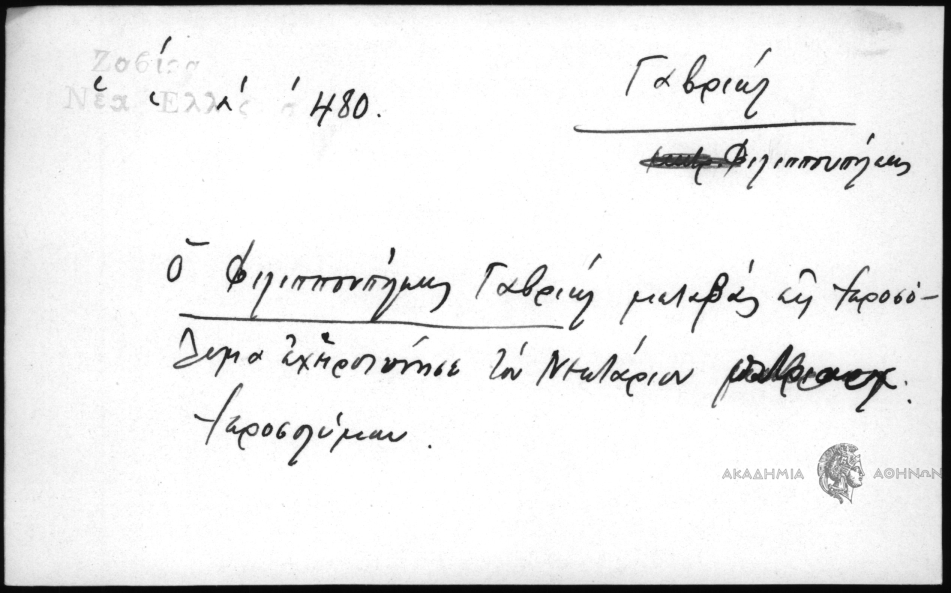 Ζαβίρα
Νέα Ἑλλάς
480.
Γαβριήλ
Φιλιππουπόλεως
Ὁ Φιλιππουπόλεως Γαβριήλ μεταβάς εἰς Ἱεροσό-
λυμα ἐχειροτόνησε τόν Νεκτάριον πατριαρχ.
Ἱεροσολύμων.
ΑΚΑΔΗΜΙΑ ΑΘΗΝΩΝ